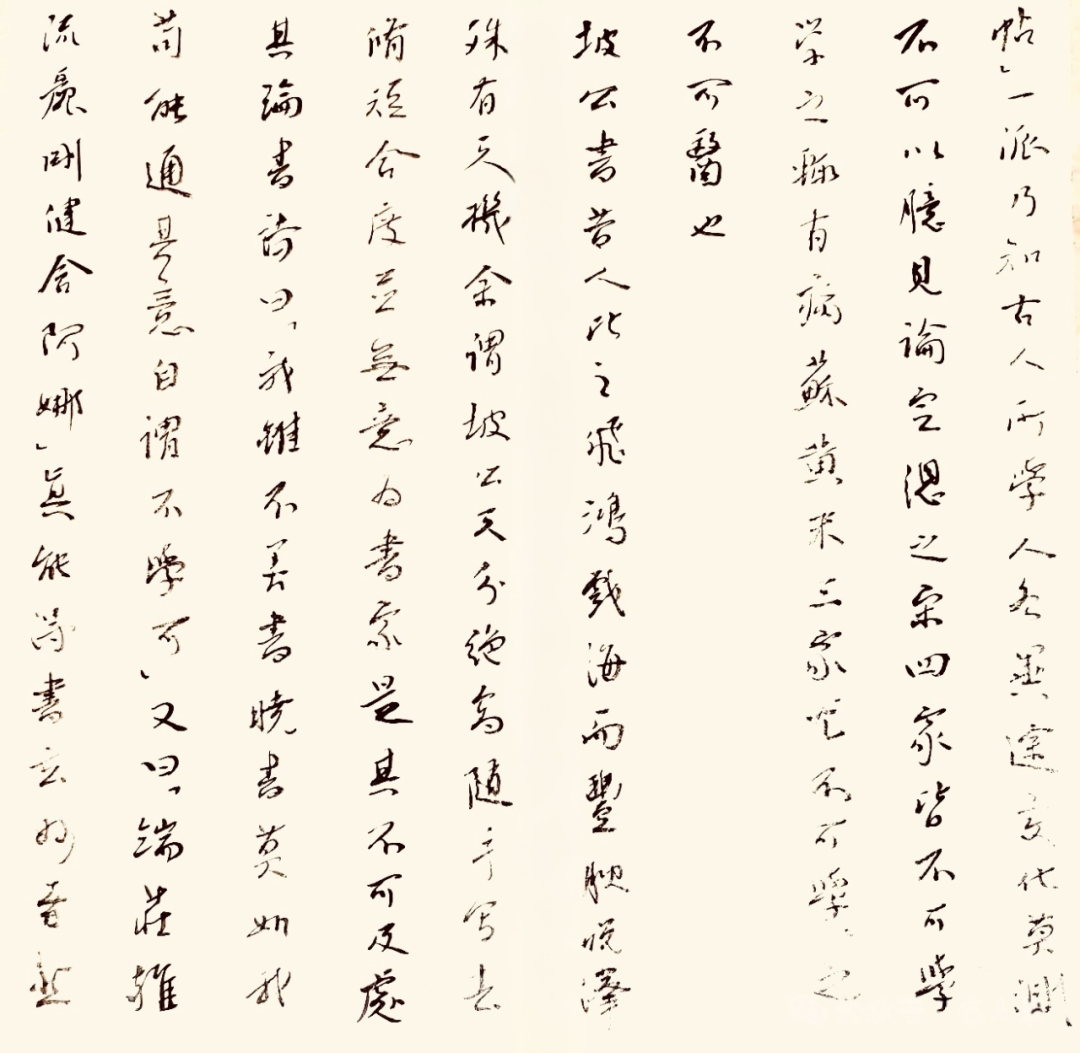 帖」一派乃知古人所學人各異途变化莫測
不可以臆見論定總之宋四家皆不可學
学之輒有病蘇黄米三家尤不可學、之
不可醫也
坡公書昔人比之飛鴻戲海而豐腴悦澤
殊有天機余謂坡公天分絶高随手写去
脩短合度並無意為書家是其不可及處
其論書詩曰、我雖不善書曉書莫如我
苟能通其意自謂不學可」又曰、端莊雜
流麗剛健含阿娜」真能得書玄妙者然